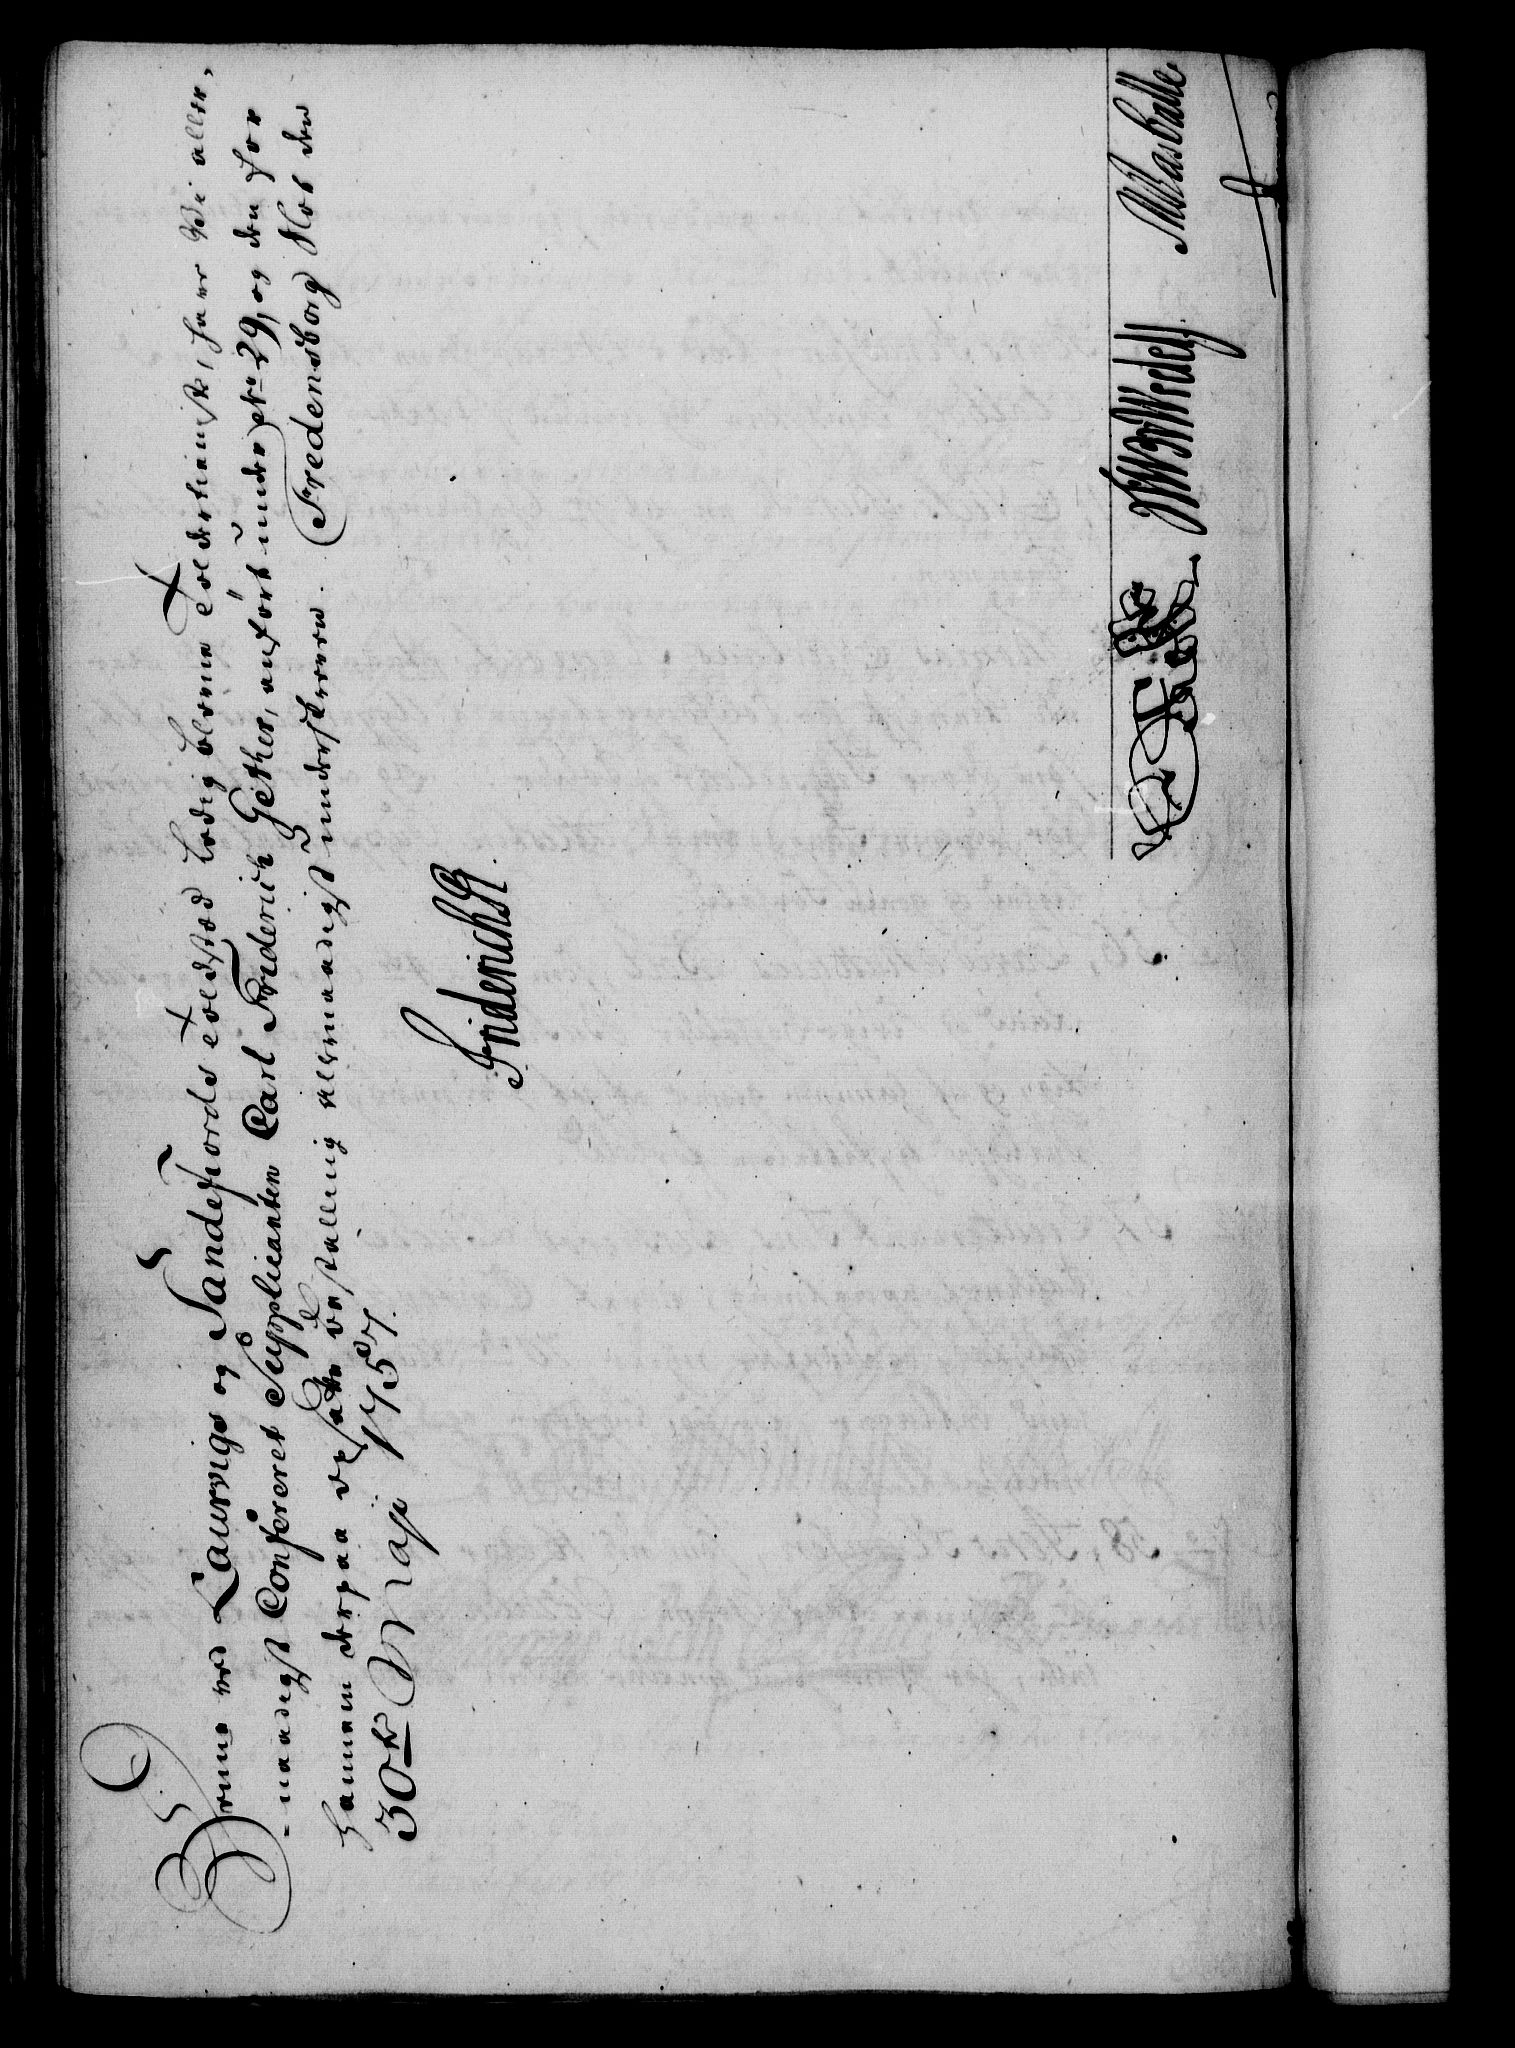 Denne ved Laurvigs og Sandefiords Toldsted ledig blevne Told betienist, haver Vi aller,
-naadigst Confereret Supplicanten Carl Friderich Gether, anført under No 29, og den for
hannem derpaa udfærdede Bestalling allernaadigst underskreven. Fredensborg Slot den
30te Maji 1757.
Friderich R
HWvWedell